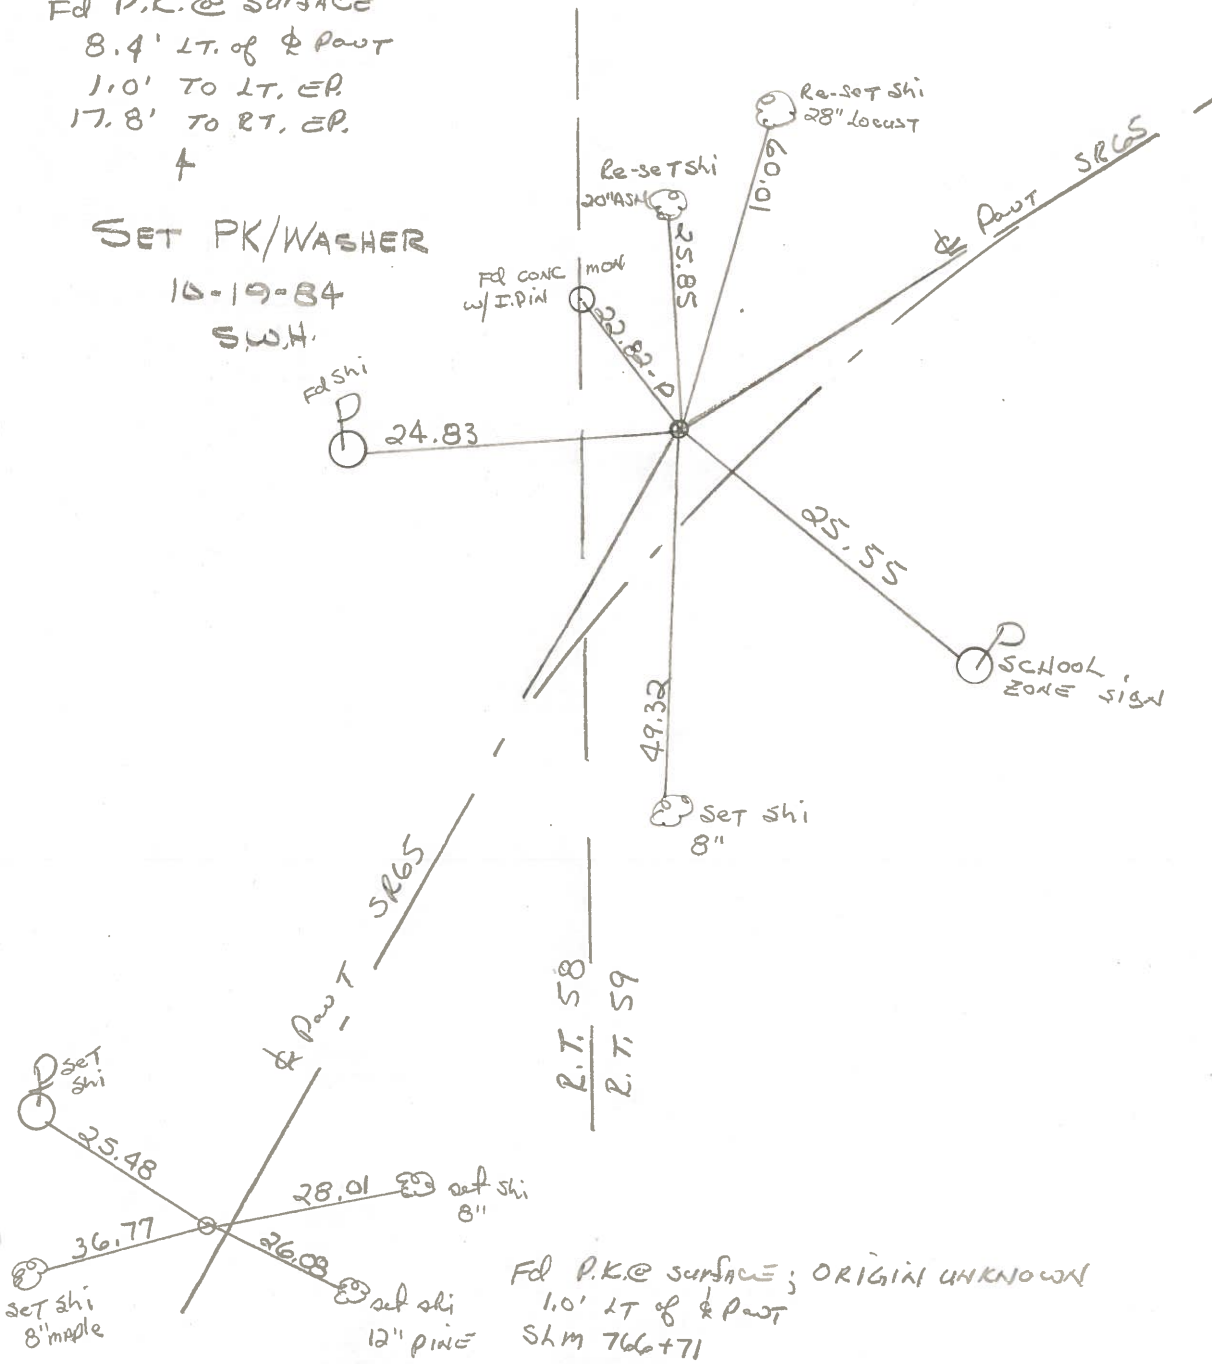 Fd P.K.@ SURFACE
8.4' LT. of ℄ PavT
1.0' TO LT. EP.
17.8' TO RT. EP.
SET PK/WASHER
10-19-84
S.W.H.
Re-set shi
28" Locust
60.01
Re-set shi
20" ASH
25.85
Fd CONC MON
w/ I.PIN
22.82-D
℄ PavT SR65
Fd shi
P
24.83
25.55
SCHOOL
ZONE SIGN
49.32
set shi
8"
SR65
℄ PavT
R.T. 58
R.T. 59
P
set
shi
25.48
28.01
set shi
8"
36.77
26.08
set shi
8" maple
set shi
12" PINE
Fd P.K.@ surface; ORIGIN UNKNOWN
1.0' LT of ℄ PavT
SLM 766+71